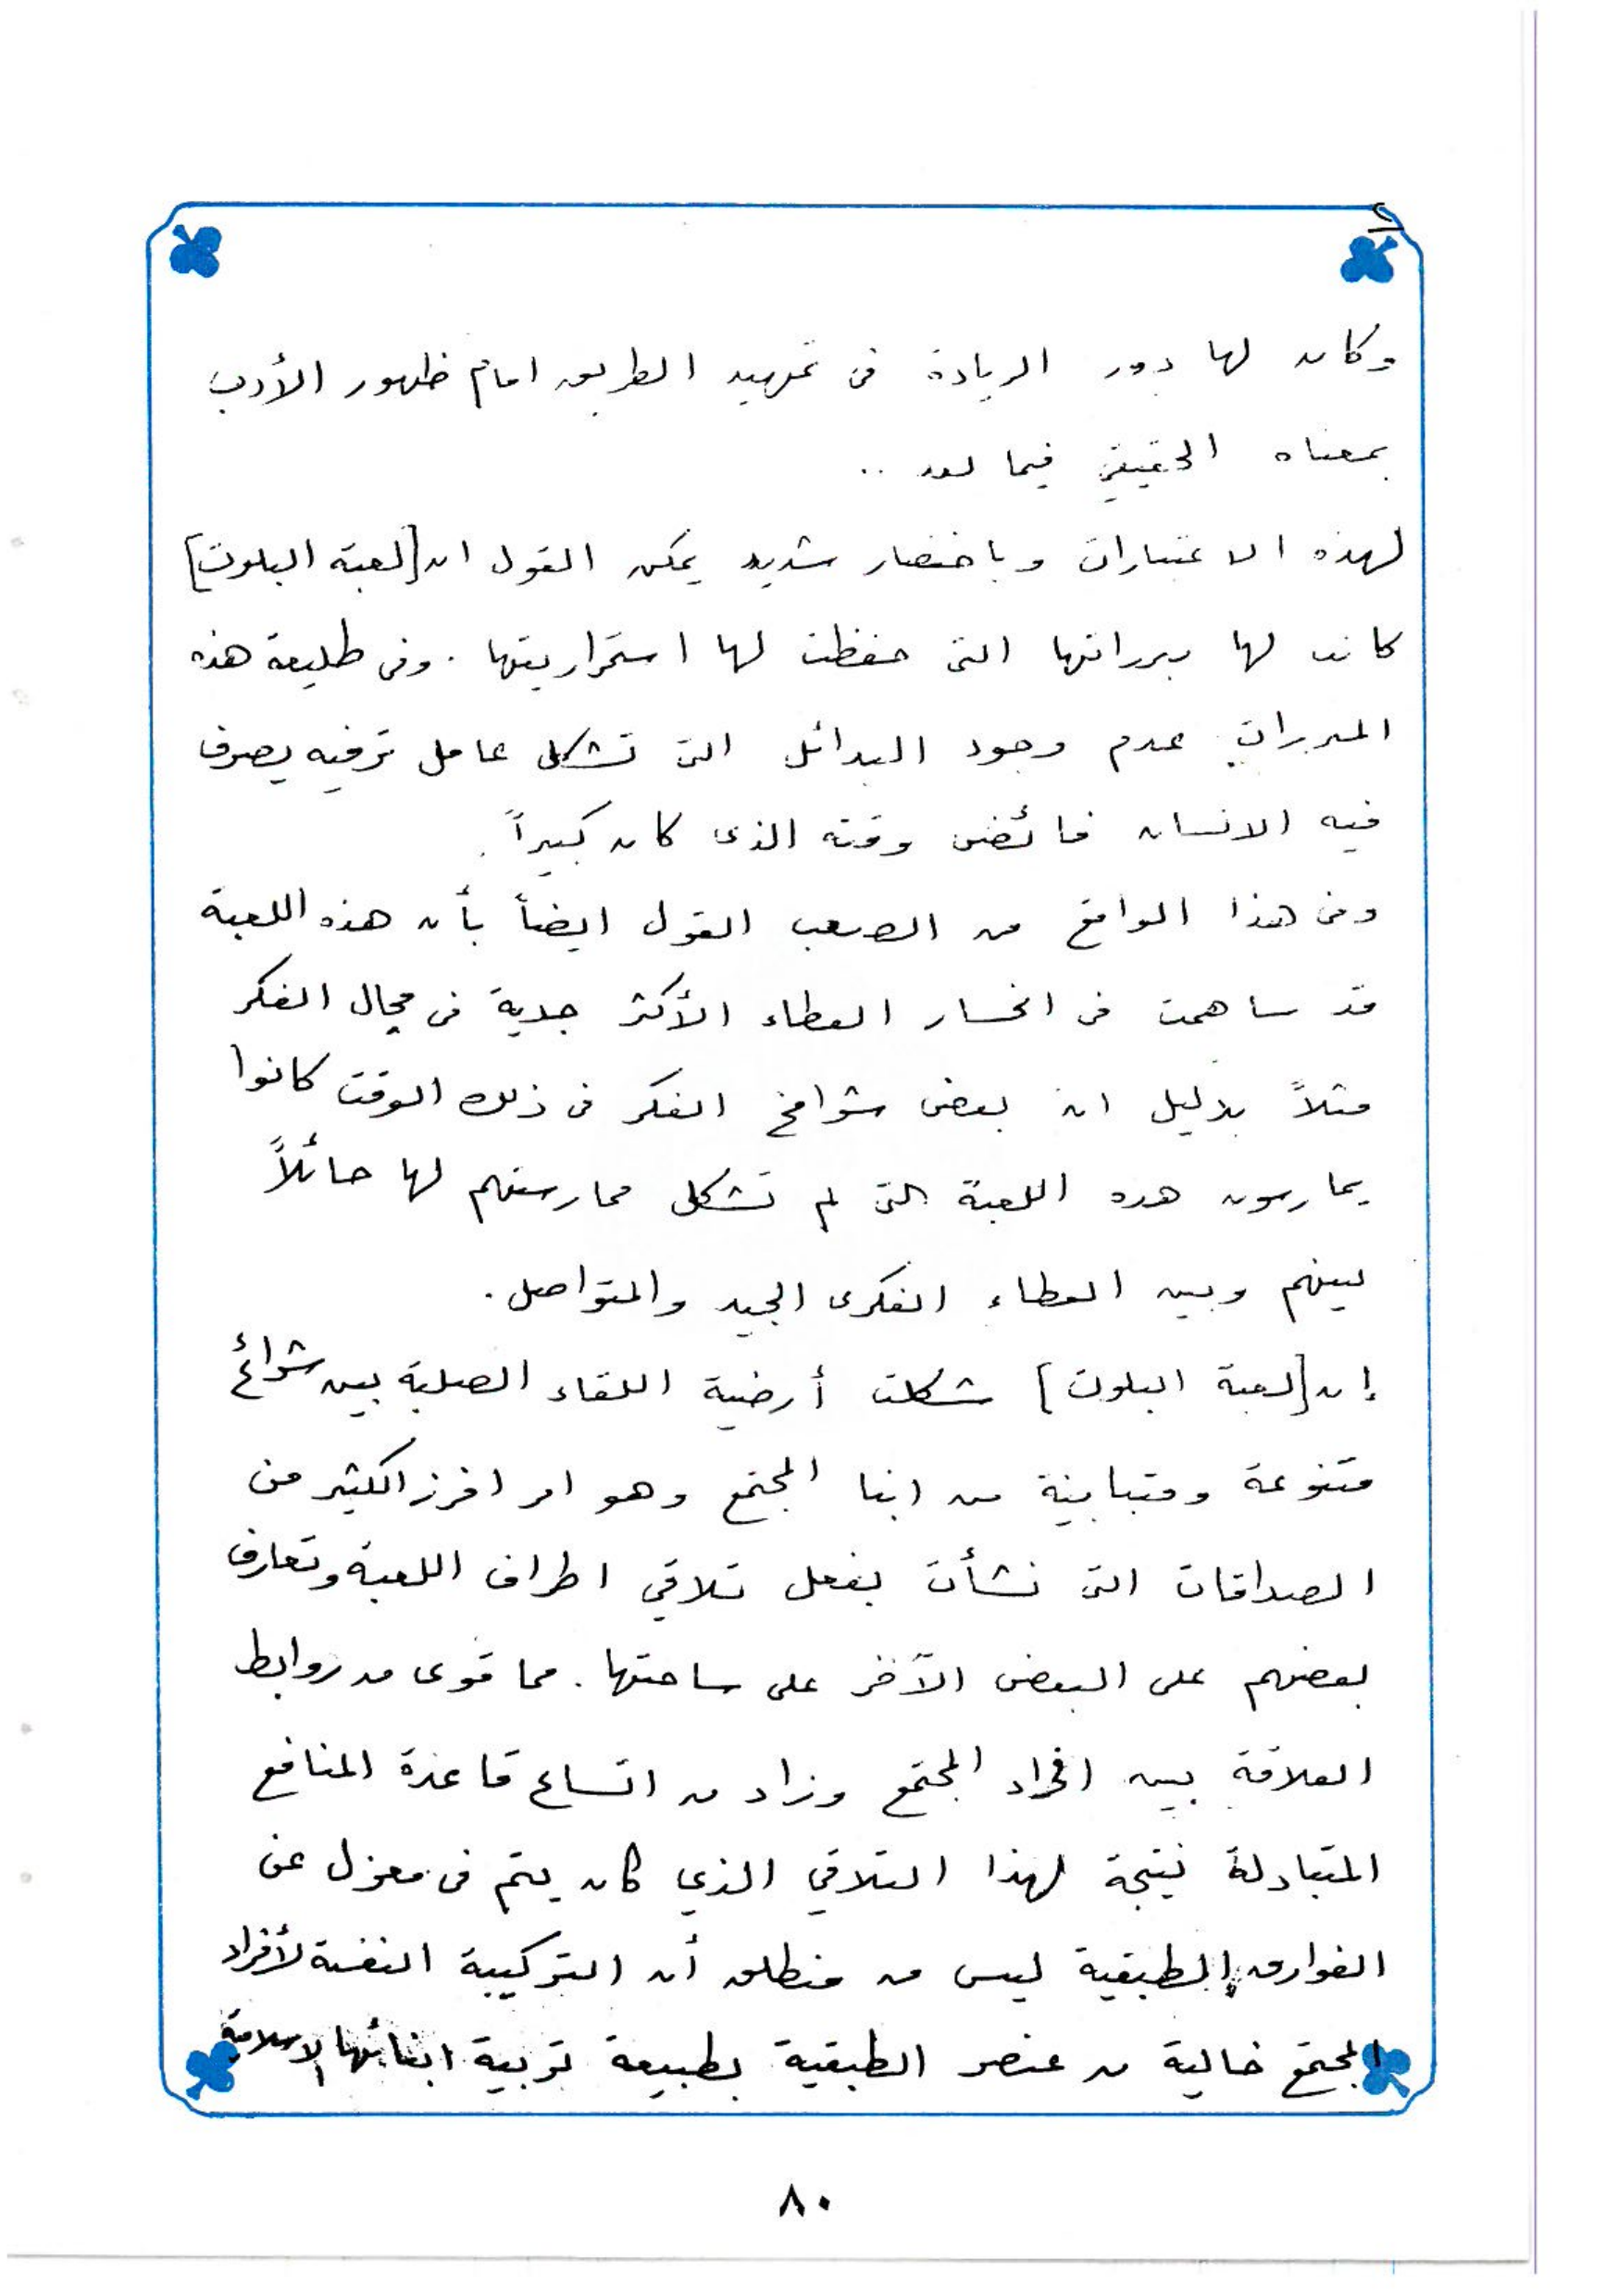 ٢
وكان لها دور الريادة في تمهيد الطريق امام ظهور الأدب
بمعناه الحقيقي فيما بعد ..
لهذه الاعتبارات وباختصار شديد يمكن القول ان [لعبة البلوت]
كانت لها مبرراتها التي حفظت لها استمراريتها . وفي طليعة هذه
المبررات عدم وجود البدائل التي تشكل عامل ترفيه يصرف
فيه الانسان فائض وقته الذي كان كبيراً .
وفي هذا الواقع من الصعب القول ايضاً بأن هذه اللعبة
قد ساهمت في انحسار العطاء الأكثر جدية في مجال الفكر
مثلاً بدليل ان بعض شوامخ الفكر في ذلك الوقت كانوا
يمارسون هذه اللعبة التي لم تشكل ممارستهم لها حائلاً
بينهم وبين العطاء الفكري الجيد والمتواصل .
إن [لعبة البلوت] شكلت أرضية اللقاء الصلبة بين شرائح
متنوعة ومتباينة من ابنا المجتمع وهو امر افرز الكثير من
الصداقات التي نشأت بفعل تلاقي اطراف اللعبة وتعارف
بعضهم على البعض الآخر على ساحتها . مما قوى من روابط
العلاقة بين افراد المجتمع وزاد من اتساع قاعدة المنافع
المتبادلة نتيجة لهذا التلاقي الذي كان يتم في معزل عن
الفوارق الطبقية ليس من منطلق أن التركيبة النفسية لأفراد
المجتمع خالية من عنصر الطبقية بطبيعة تربية ابنائها الاسلامية
٨٠